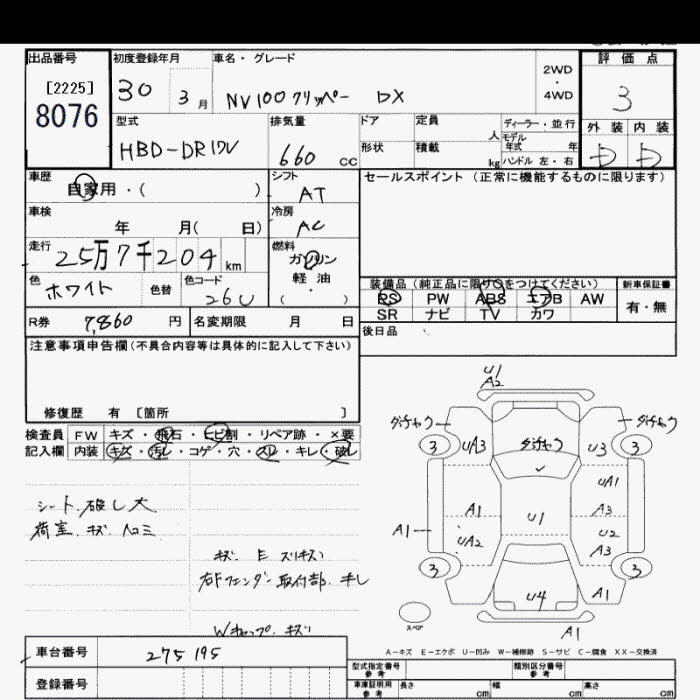 出品番号
[2225]
8076
初度登録年月
30 3月
車名・グレード
NV100クリッパー DX
2WD
・
4WD
評価点
3
外装 内装
D D
型式
HBD-DR17V
排気量
660 cc
ドア
定員
人
形状
積載
kg
ディーラー・並行
モデル年式 年
ハンドル 左・右
車歴
自家用・( )
シフト
AT
セールスポイント(正常に機能するものに限ります)
車検
年 月( 日)
冷房
AC
走行
25万7千204km
燃料
ガソリン
軽油
( )
色
ホワイト
色替
色コード
26U
装備品(純正品に限り○をつけてください)
新車保証書
PS PW ABS エアB AW
有・無
SR ナビ TV カワ
R券 7,860円
名変期限 月 日
後日品
注意事項申告欄(不具合内容等は具体的に記入して下さい)
修復歴 有 [箇所 ]
検査員 FW キズ・飛石・ヒビ割・リペア跡・×要
記入欄 内装 キズ・汚レ・コゲ・穴・スレ・キレ・破レ
シート破レ大
荷室.キズ ヘコミ
キズ E スリキズ
右Fフェンダー取付部.キレ
Wキャップ.キズ
U1
A2
ダチャク
ダチャク
ダチャク
3
3
UA3
U3
UA1
A1
A3
U1
U2
A1
UA2
A3
3
3
U4
A1
A1
スペア
A-キズ E-エクボ U-凹み W-補修跡 S-サビ C-腐食 XX-交換済
車台番号 275195
登録番号
型式指定番号 参考
類別区分番号 参考
車庫証明用 参考
長さ cm
幅 cm
高さ cm